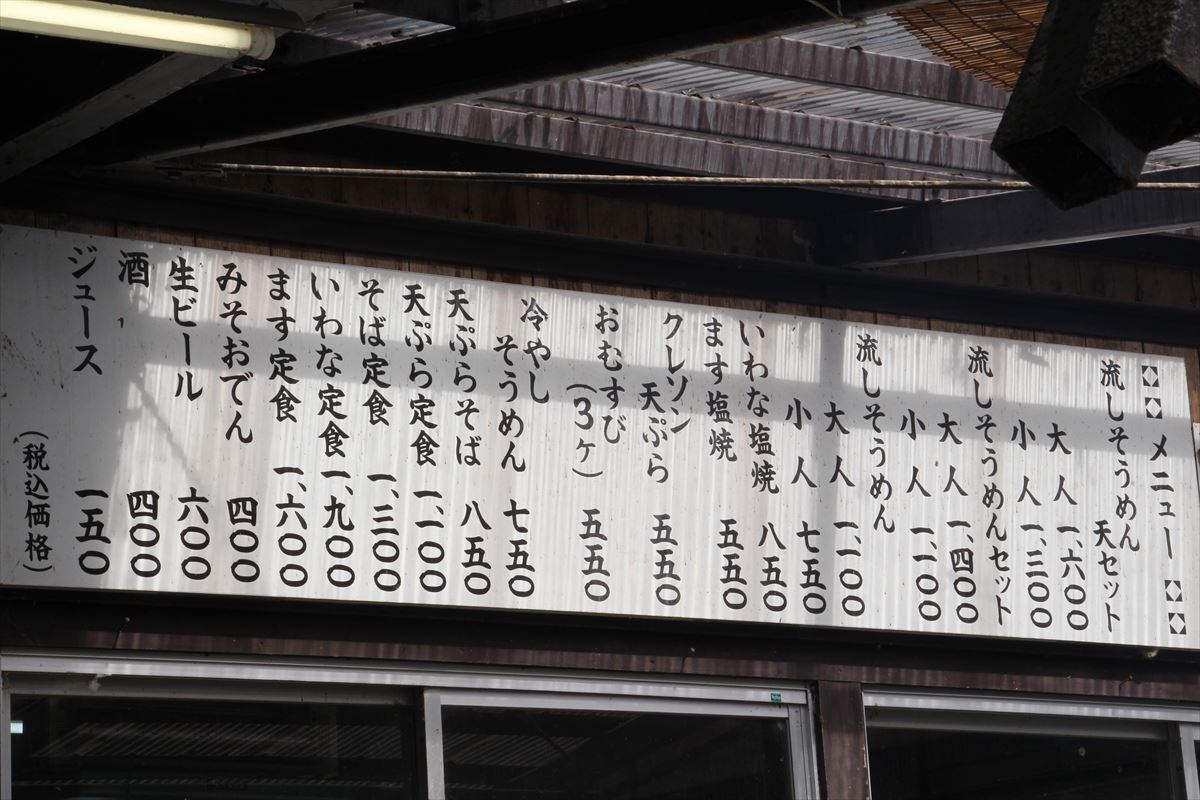 メニュー
流しそうめん
天セット
大人 一、六〇〇
小人 一、三〇〇
流しそうめんセット
大人 一、四〇〇
小人 一、一〇〇
流しそうめん
大人 一、一〇〇
小人 七五〇
いわな塩焼 八五〇
ます塩焼 五五〇
クレソン
天ぷら 五五〇
おむすび
(3ヶ) 五五〇
冷やし
そうめん 七五〇
天ぷらそば 八五〇
天ぷら定食 一、一〇〇
そば定食 一、三〇〇
いわな定食 一、九〇〇
ます定食 一、六〇〇
みそおでん 四〇〇
生ビール 六〇〇
酒 四〇〇
ジュース 一五〇
(税込価格)